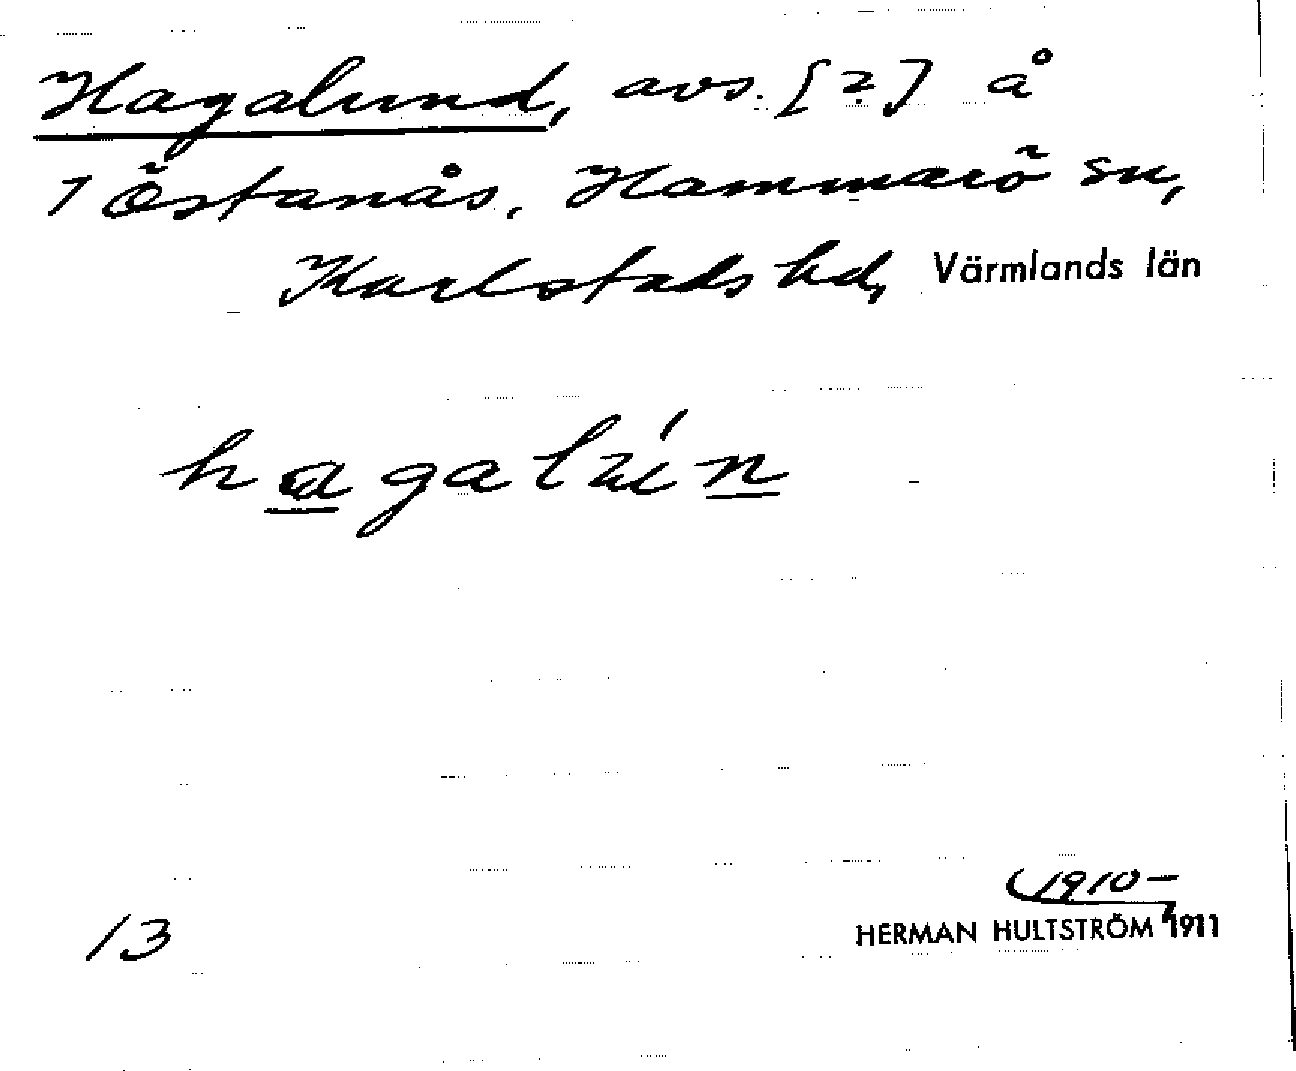 Hagalund, avs. [?] å
1 Östanås, Hammarö sn,
Karlstads hd, Värmlands län
hagalún
1910–
13 HERMAN HULTSTRÖM 1911